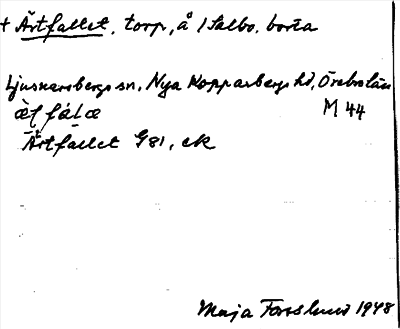 + Ärtfallet, torp, å /Salbo, borta
Ljusnarsbergs sn, Nya Kopparbergs hd, Örebro län
M 44
Ärtfallet G81, ek
Maja Forslund 1948